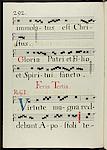 292.
immolatus est Christus.
Gloria Patri et Filio
et Spiritui sancto.
Feria Tertia.
Virtute magna red-
debant Apostoli te-